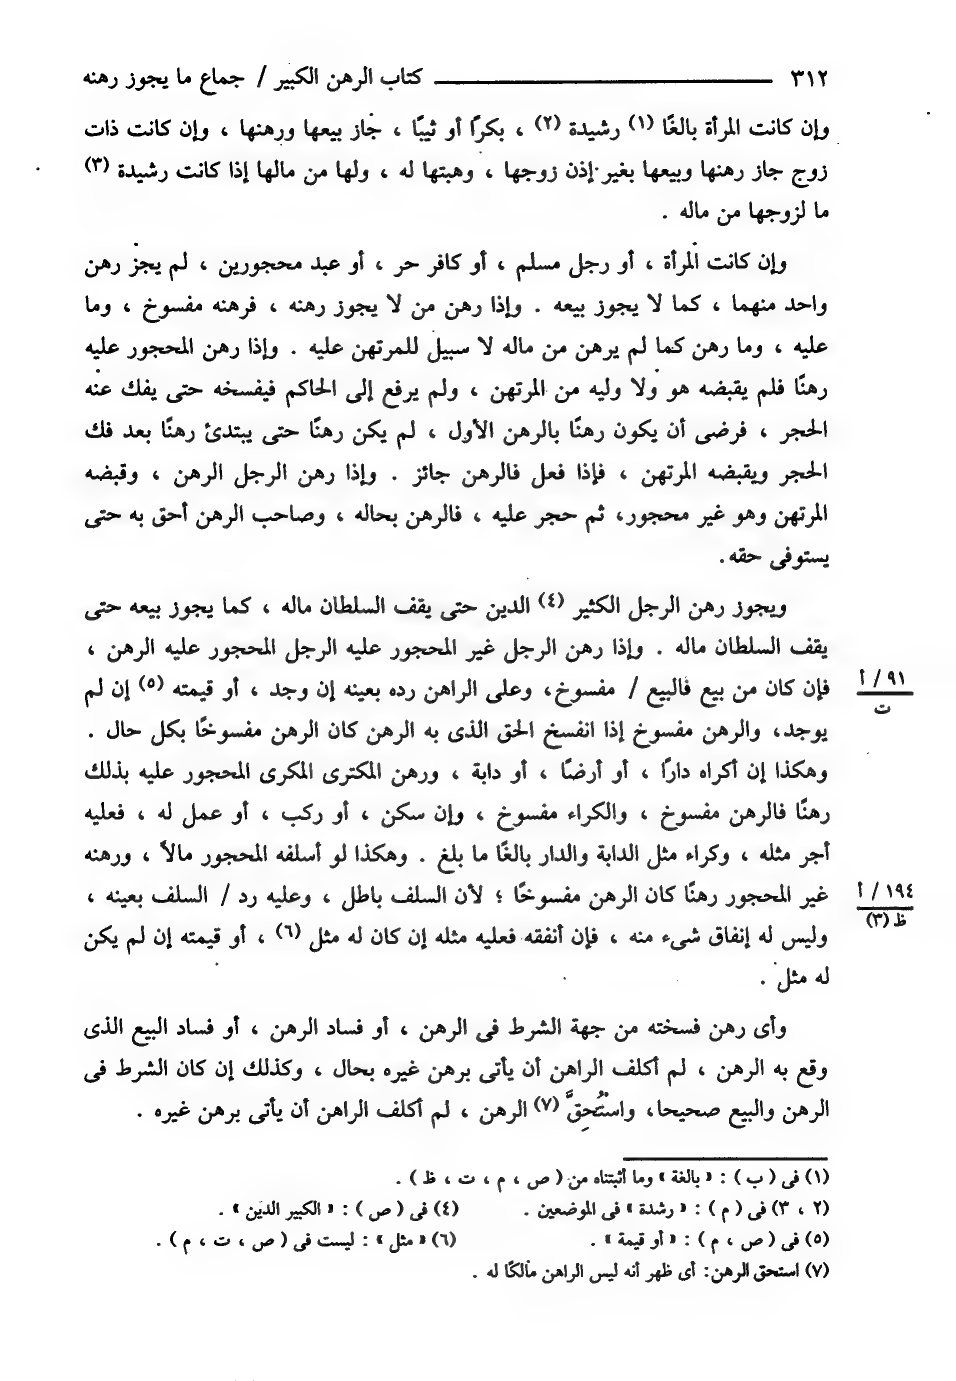 ٣١٢ كتاب الرهن الكبير / جماع ما يجوز رهنه
وإن كانت المرأة بالغًا (١) رشيدة (٢) ، بكرًا أو ثيبًا ، جاز بيعها ورهنها ، وإن كانت ذات
زوج جاز رهنها وبيعها بغير إذن زوجها ، وهبتها له ، ولها من مالها إذا كانت رشيدة (٣)
ما لزوجها من ماله .
وإن كانت المرأة ، أو رجل مسلم ، أو كافر حر ، أو عبد محجورين ، لم يجز رهن
واحد منهما ، كما لا يجوز بيعه . وإذا رهن من لا يجوز رهنه ، فرهنه مفسوخ ، وما
عليه ، وما رهن كما لم يرهن من ماله لا سبيل للمرتهن عليه . وإذا رهن المحجور عليه
رهنًا فلم يقبضه هو ولا وليه من المرتهن ، ولم يرفع إلى الحاكم فيفسخه حتى يفك عنه
الحجر ، فرضى أن يكون رهنًا بالرهن الأول ، لم يكن رهنًا حتى يبتدئ رهنًا بعد فك
الحجر ويقبضه المرتهن ، فإذا فعل فالرهن جائز . وإذا رهن الرجل الرهن ، وقبضه
المرتهن وهو غير محجور، ثم حجر عليه ، فالرهن بحاله ، وصاحب الرهن أحق به حتى
يستوفى حقه.
ويجوز رهن الرجل الكثير (٤) الدين حتى يقف السلطان ماله ، كما يجوز بيعه حتى
يقف السلطان ماله . وإذا رهن الرجل غير المحجور عليه الرجل المحجور عليه الرهن ،
فإن كان من بيع فالبيع / مفسوخ، وعلى الراهن رده بعينه إن وجد ، أو قيمته (٥) إن لم
٩١ / أ
ت
يوجد، والرهن مفسوخ إذا انفسخ الحق الذى به الرهن كان الرهن مفسوخًا بكل حال .
وهكذا إن أكراه دارًا ، أو أرضًا ، أو دابة ، ورهن المكترى المكرى المحجور عليه بذلك
رهنًا فالرهن مفسوخ ، والكراء مفسوخ ، وإن سكن ، أو ركب ، أو عمل له ، فعليه
أجر مثله ، وكراء مثل الدابة والدار بالغًا ما بلغ . وهكذا لو أسلفه المحجور مالاً ، ورهنه
غير المحجور رهنًا كان الرهن مفسوخًا ؛ لأن السلف باطل ، وعليه رد / السلف بعينه ،
١٩٤ / أ
ظ (٣)
وليس له إنفاق شىء منه ، فإن أنفقه فعليه مثله إن كان له مثل (٦) ، أو قيمته إن لم يكن
له مثل .
وأى رهن فسخته من جهة الشرط فى الرهن ، أو فساد الرهن ، أو فساد البيع الذى
وقع به الرهن ، لم أكلف الراهن أن يأتى برهن غيره بحال ، وكذلك إن كان الشرط فى
الرهن والبيع صحيحا، واستُحِقَّ (٧) الرهن ، لم أكلف الراهن أن يأتى برهن غيره .
(١) فى ( ب ) : « بالغة » وما أثبتناه من ( ص ، م ، ت ، ظ ) .
(٢ ، ٣) فى ( م ) : « رشدة » فى الموضعين . (٤) فى ( ص ) : « الكبير الدين » .
(٥) فى ( ص ، م ) : « أو قيمة » . (٦) « مثل » : ليست فى ( ص ، ت ، م ) .
(٧) استحق الرهن: أى ظهر أنه ليس الراهن مالكًا له .